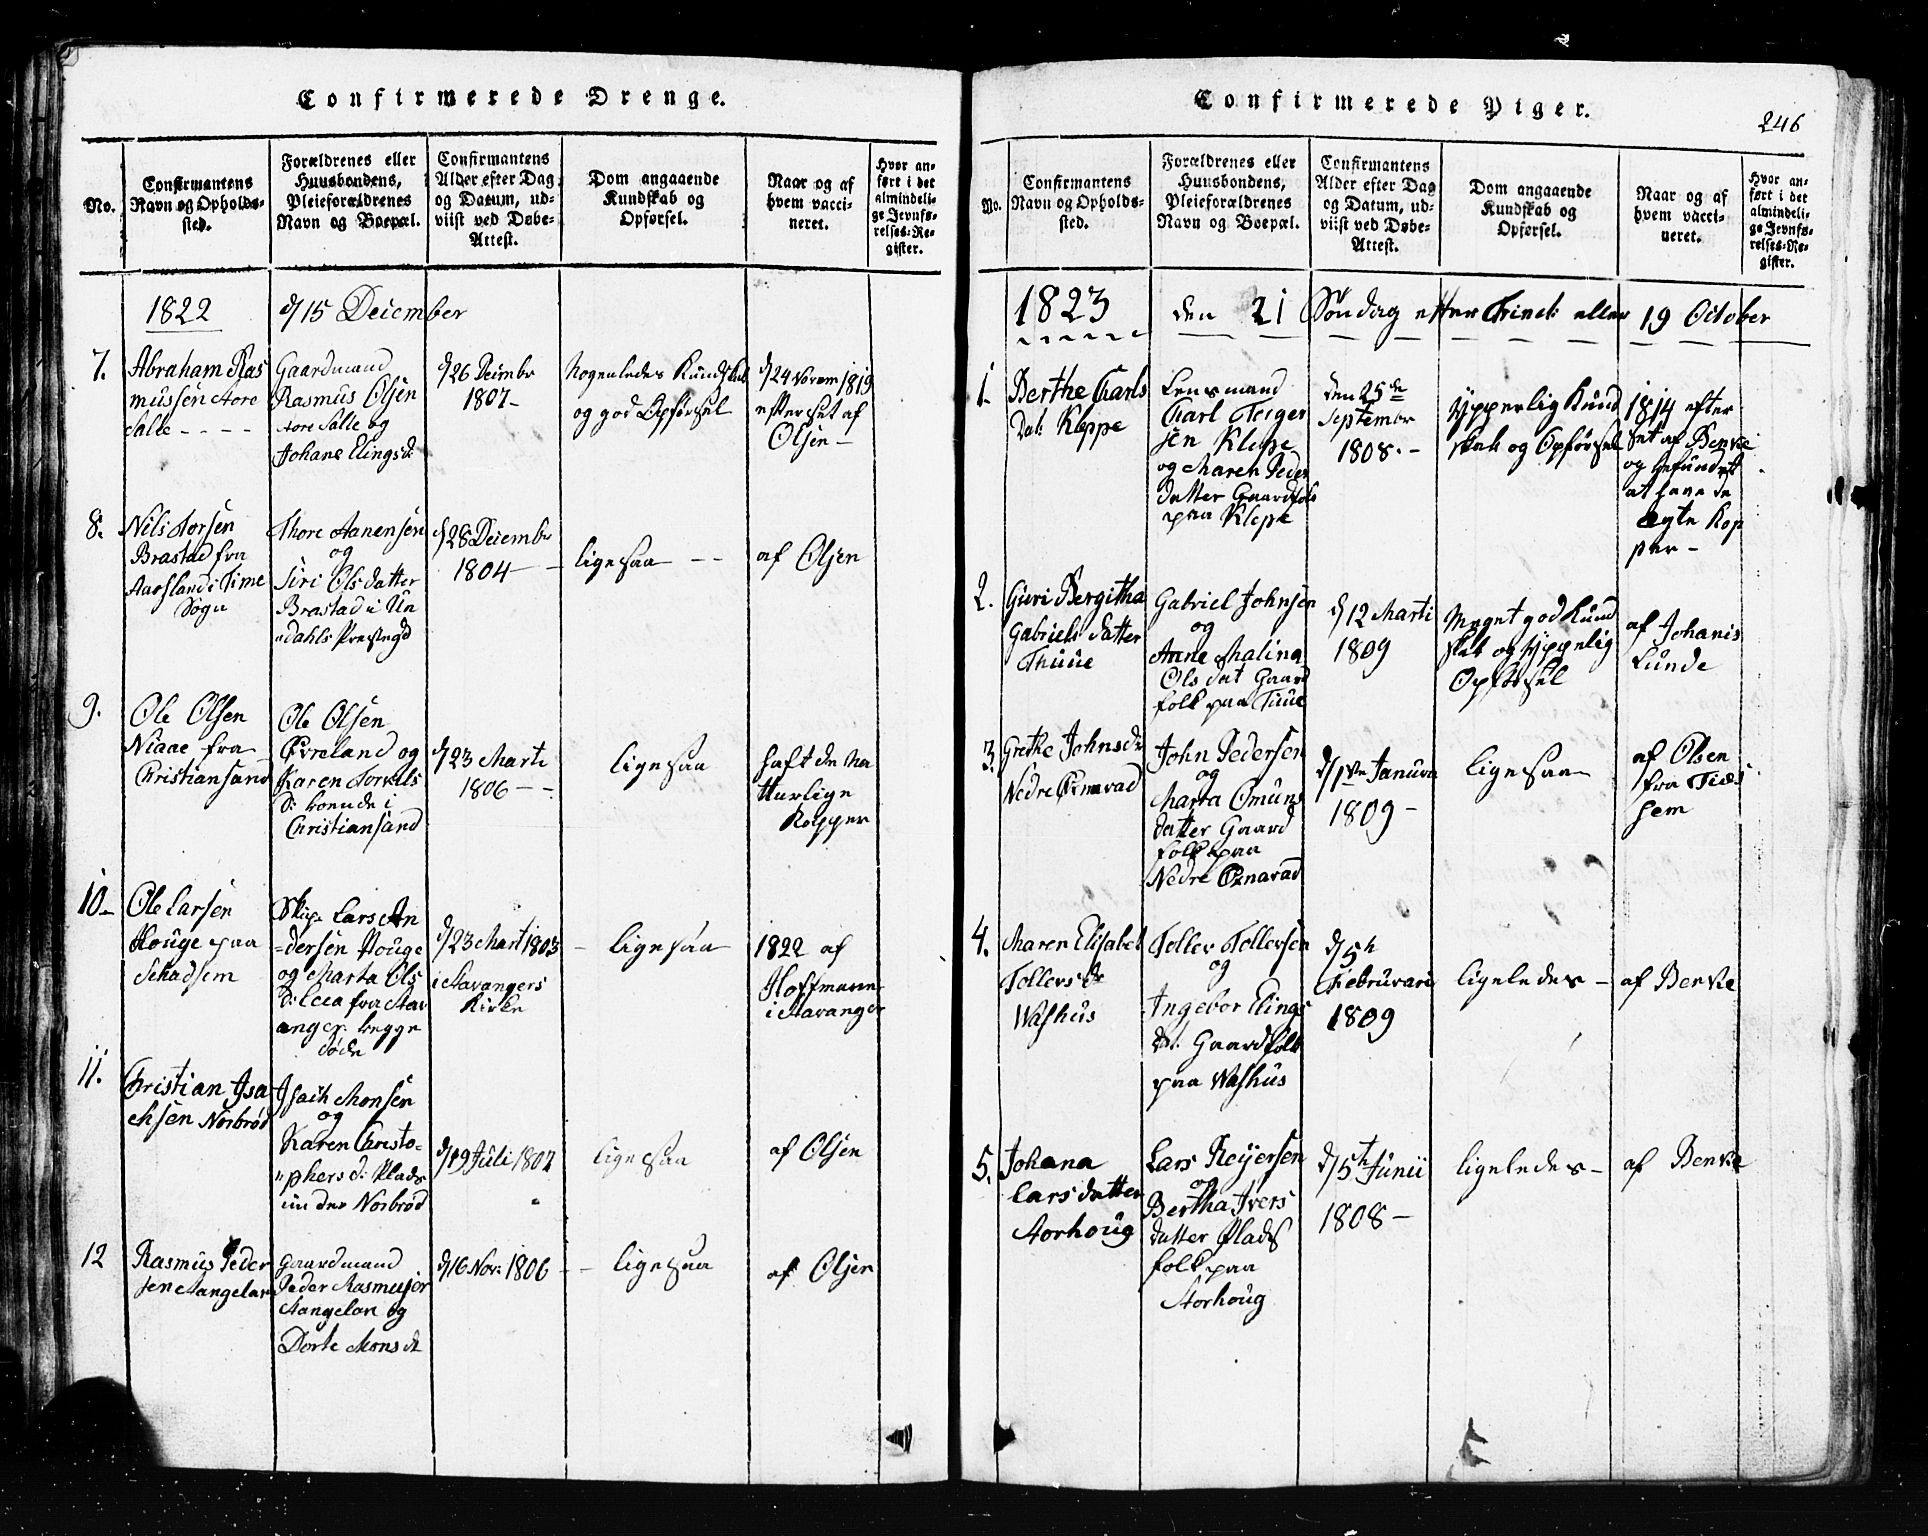 Confirmerede Drenge.
No.
Confirmantens
Navn og Opholds-
sted.
Forældrenes eller
Huusbondens,
Pleieforældrenes
Navn og Boepæl.
Confirmantens
Alder efter Dag
og Datum, ud-
viist ved Døbe-
Attest.
Dom angaaende
Kundskab og
Opførsel.
Naar og af
hvem vacci-
neret.
Hvor an-
ført i det
almindeli-
ge Jevnfø-
relses-Re-
gister.
1822
d/15 Deiember
7.
Abraham Ras
mussen Aore
Salle - - - -
Gaardmand
Rasmus Olsen
Aore Salle og
Johane Elingsd:
d/26 Deimbr
1807-
Nogenledes Kundskab
og god Opførsel
d/24 Novem 1819
efterset af
Olsen -
8.
Nils Torsen
Brastad fra
Aarsland i Time
Sogn
Thore Aanensen
og
Siri Olsdatter
Brastad i Un
dahls Prestegd
d/28 Deiember
1804 -
ligesaa - -
af Olsen
9.
Ole Olsen
Niaae fra
Christiansand
Ole Olsen
Øvreland og
Karen Torkels
D: boende i
Christiansand
d/23 Marti
1806 - -
ligesaa
haft de na
tturlige
Kopper
10-
Ole Larsen
Houge paa
Schadsem
Skip. Lars An
=dersen Houge
og Marta Ols
D: fra Stav
anger begge
døde
d/23 Mart 1803
i Stavangers
Kirke
- ligesaa
1822 af
Hoffmann
i Stavanger
11.
Christian Isa
chsen Norbrød
Isach Monsen
og
Karen Christo=
"phers d: Plads
under Norbrød
d/19 Juli 1807
ligesaa
af Olsen
12
Rasmus Peder
sen Stangelan
Gaardmand
Peder Rasmusen
Stangelan og
Dorte Monsdt
d/16 Nov: 1806
- - ligesaa
af Olsen
Confirmerede Piger.
246
No.
Confirmantens
Navn og Opholds-
sted.
Forældrenes eller
Huusbondens,
Pleieforældrenes
Navn og Boepæl.
Confirmantens
Alder efter Dag
og Datum, ud-
viist ved Døbe-
Attest.
Dom angaaende
Kundskab og
Opførsel.
Naar og af
hvem vacci-
neret.
Hvor an-
ført i det
almindeli-
ge Jevnfø-
relses-Re-
gister.
1823
den 21 Søndag efter Trinit: eller 19 October
1-
Berthe Carls
Dat: Kleppe
Lensmand
Carl Teiger
sen Kleppe
og Maren Peder
datter Gaardfolk
paa Kleppe
den 25de
September
1808. -
Ypperlig Kund
skab og Opførsel
1814 efter
set af Benke
og befundet
at have de
ægte Kop
per -
2.
Guri Bergitha
Gabriels datter
Thuue
Gabriel Johnsen
og
Anne Malina
Olsdat Gaard
folk paa Tuue
d/12 Marti
1809
Meget god Kund
skab og Yppelig
Opførsel
af Johanis
Lunde
3.
Grethe Johnsdr
Nedre Øxnavad
John Pedersen
og
Marta Omuns
datter Gaard
folk paa
Nedre Øxnavad
d/1ste Januari
1809 -
ligesaa
af Olsen
fra Ties
hem
4.
Maren Elisabet
Tollevsdr
Washus
Tollev Tollevsen
og
Ingebor Elings
dt: Gaardfolk
paa Washus
d/5te
Februvari
1809
ligeledes -
af Benke
5.
Johana
Larsdatter
Storhoug
Lars Reyersen
og
Bertha Ivers
datter Plads
folk paa
Storhoug
d/5te Junii
1808 -
ligeledes -
af Benke